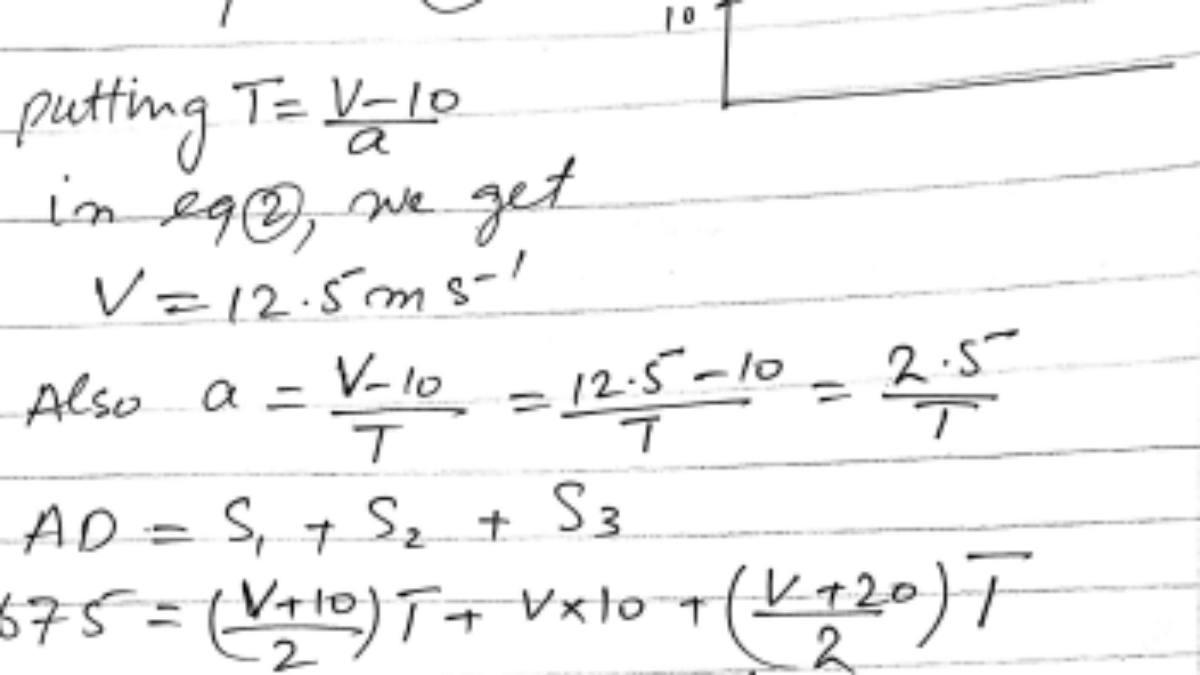 10
putting T = V-10/a
in eq②, we get
V = 12.5 m s⁻¹
Also a = V-10/T = 12.5-10/T = 2.5/T
AD = S₁ + S₂ + S₃
675 = (V+10/2) T + V×10 + (V+20/2) T